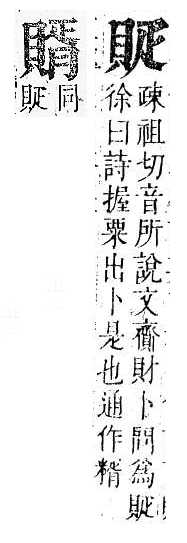 䝪
疎祖切音所說文齎財卜問爲䝪
徐曰詩握粟出卜是也通作糈
同
䝪